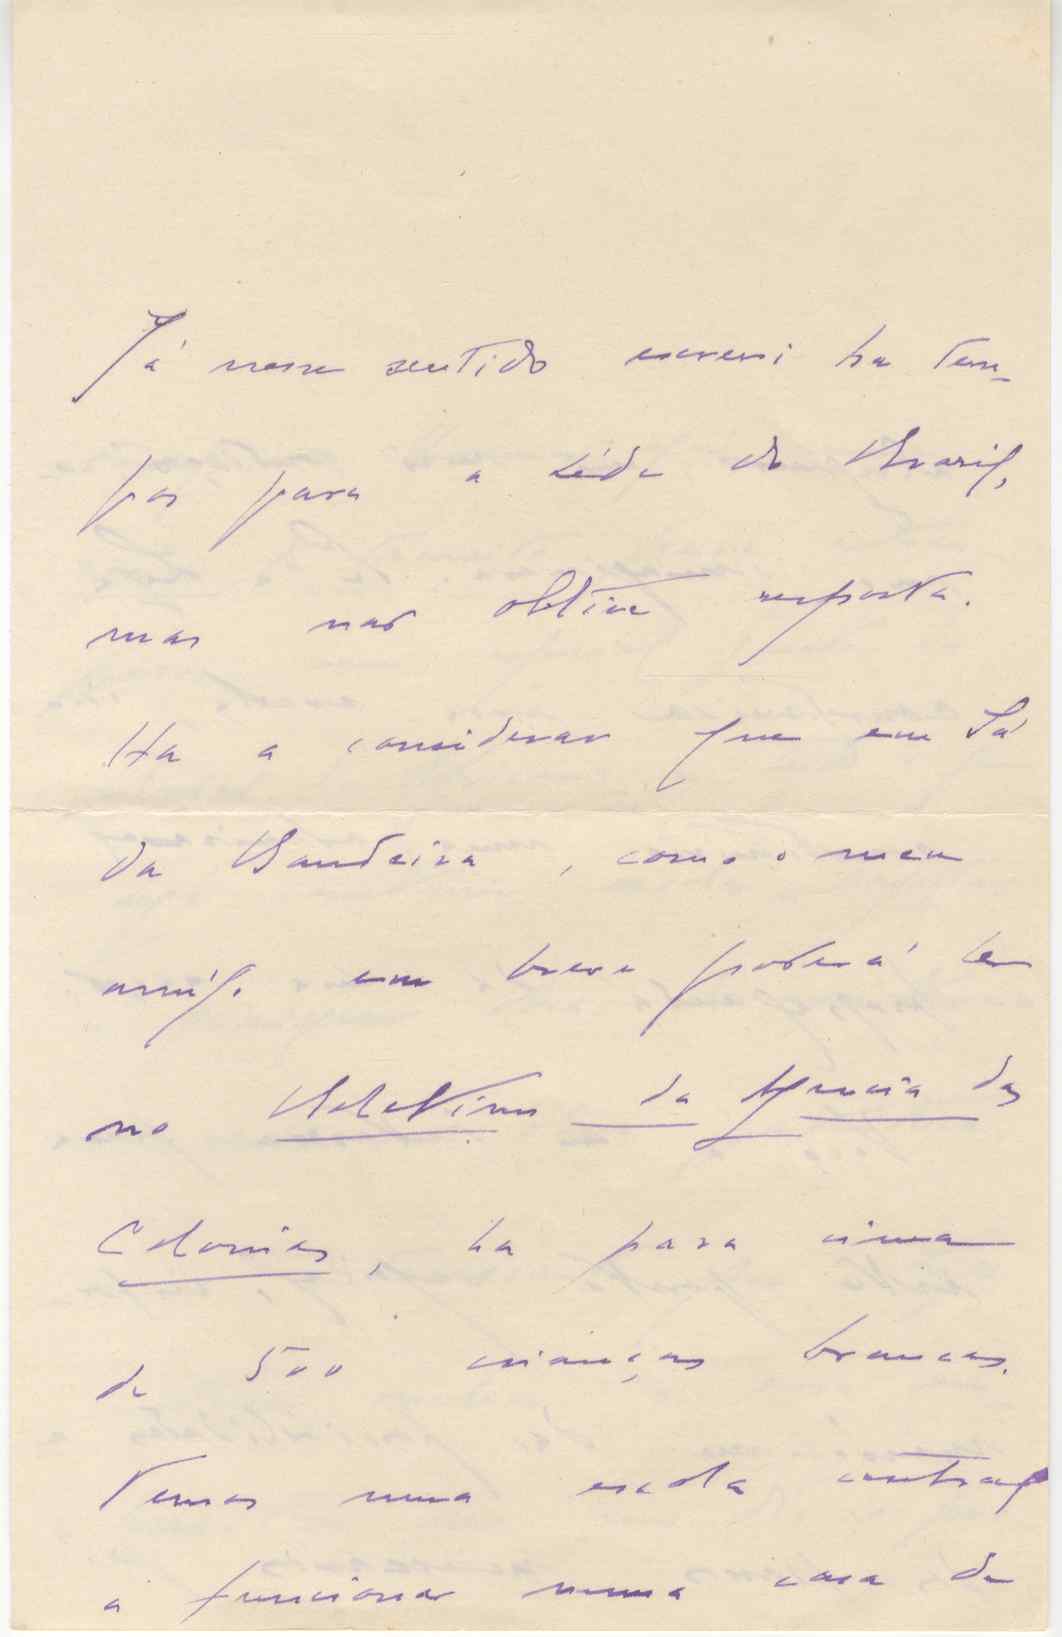 Já nesse sentido escrevi ha tem-
pos para a séde do Brazil,
mas não obtive resposta.
Ha a considerar que em Sá
da Bandeira, como o meu
amigo em breve poderá ler
no Boletim da Agencia das
Colonias, ha para cima
de 500 crianças brancas.
Temos uma escola central
a funcionar numa casa de